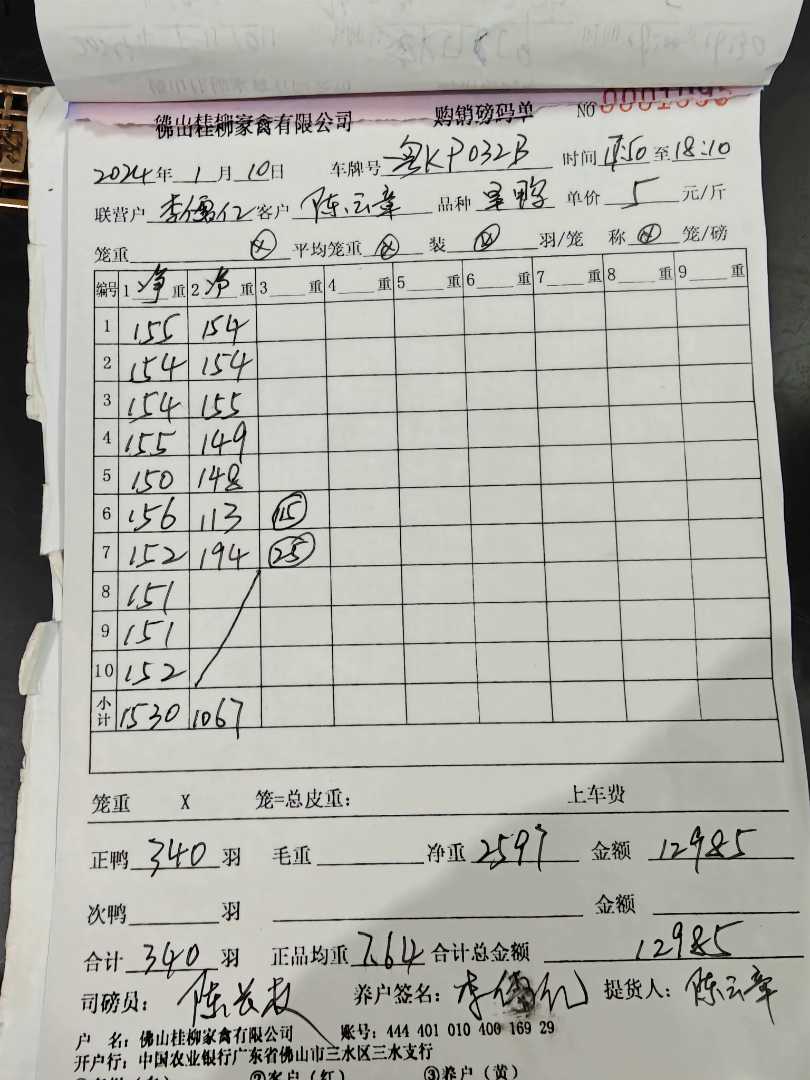 佛山桂柳家禽有限公司 购销磅码单 NO 0001095
2024年 1 月 10日 车牌号 粤KP032B 时间 17:50 至 18:10
联营户 李儒仁 客户 陈云章 品种 单价 5 元/斤
笼重 平均笼重 装 羽/笼 称 笼/磅
编号 1 净 重 2 净 重 3 重 4 重 5 重 6 重 7 重 8 重 9 重
1 155 154
2 154 154
3 154 155
4 155 149
5 150 148
6 156 113 15
7 152 194 25
8 151
9 151
10 152
小计 1530 1067
笼重 X 笼=总皮重: 上车费
正鸭 340 羽 毛重 净重 2597 金额 12985
次鸭 羽 金额
合计 340 羽 正品均重 7.64 合计总金额 12985
司磅员: 养户签名: 提货人: 陈云章
户 名: 佛山桂柳家禽有限公司 账号: 444 401 010 400 169 29
开户行: 中国农业银行广东省佛山市三水区三水支行
②客户(红) ③养户(黄)